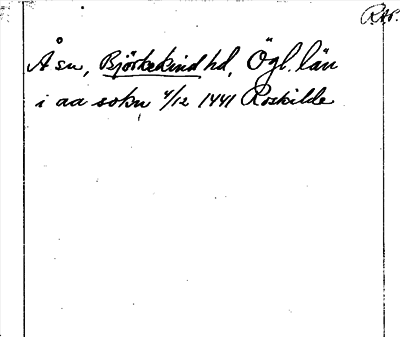 Rep.
Å sn, Björkekind hd, Ögl. län
i aa sokn 4/12 1441 Roskilde